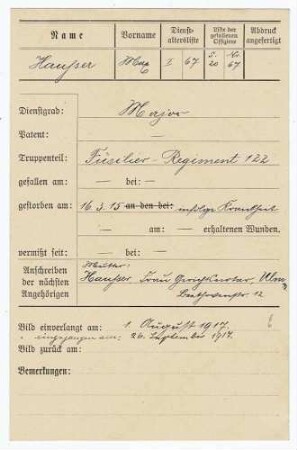 Name Vorname Dienst- altersliste Liste der gefallenen Offiziere Abdruck angefertigt
Hausser Max I 67 S. 20 Nr. 67
Dienstgrad: Major
Patent: —
Truppenteil: Füsilier-Regiment 122
gefallen am: — bei: —
gestorben am: 16.3.15 an den bei: infolge Krankheit
— am: — erhaltenen Wunden.
vermißt seit: — bei: —
Anschreiben Mutter:
der nächsten Hausser, Frau Ulm,
Angehörigen 12
Bild einverlangt am: 1. August 1917.
" eingegangen am: 26. September 1917.
Bild zurück am:
Bemerkungen: